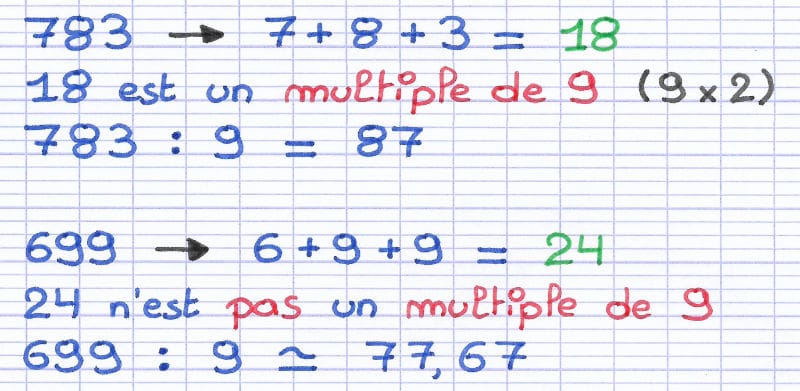 783 → 7 + 8 + 3 = 18
18 est un multiple de 9 (9 x 2)
783 : 9 = 87
699 → 6 + 9 + 9 = 24
24 n'est pas un multiple de 9
699 : 9 ≃ 77,67